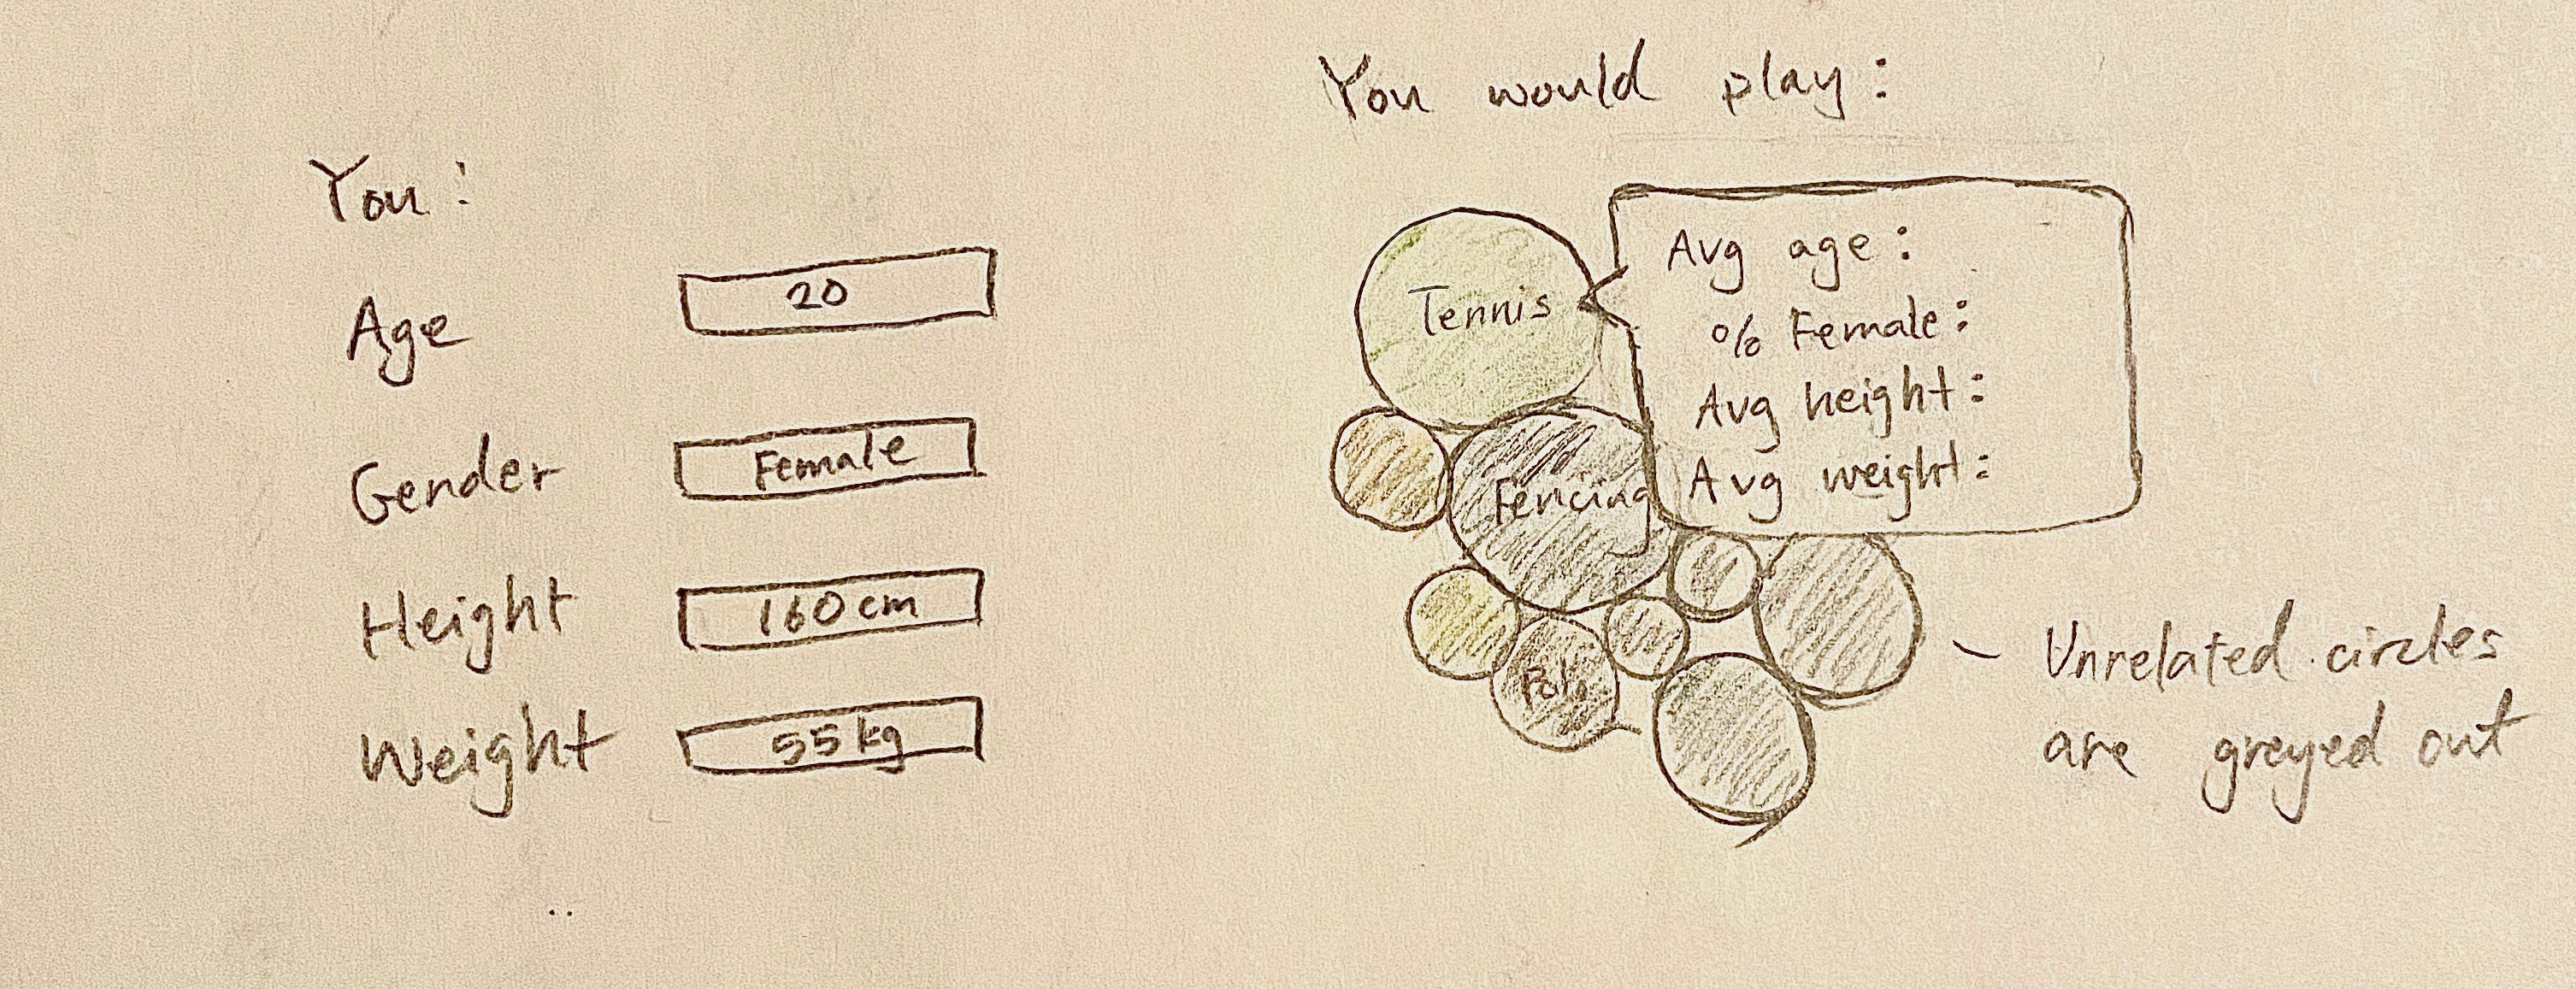 You:
Age
20
Gender
Female
Height
160cm
Weight
55kg
You would play:
Tennis
Avg age:
% Female:
Avg height:
Avg weight:
Fencing
Polo
Unrelated circles
are greyed out